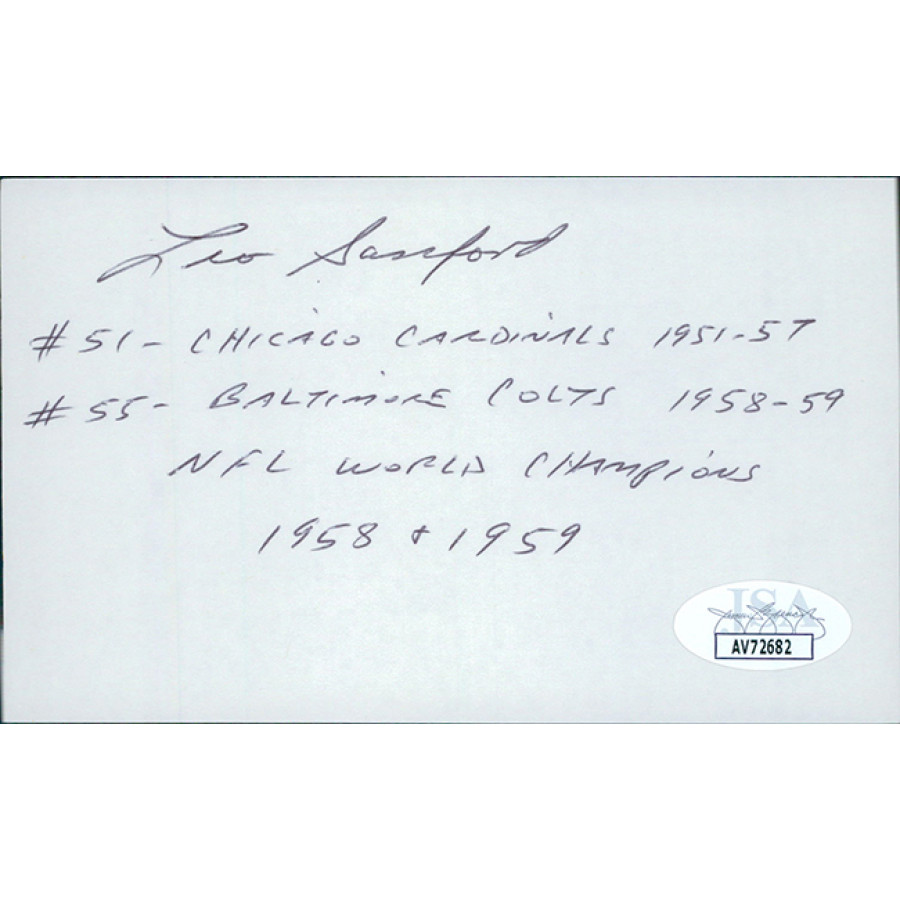 Leo Sanford
# 51 - CHICAGO CARDINALS 1951-57
# 55 - BALTIMORE COLTS 1958-59
NFL WORLD CHAMPIONS
1958 + 1959
JSA
AV72682